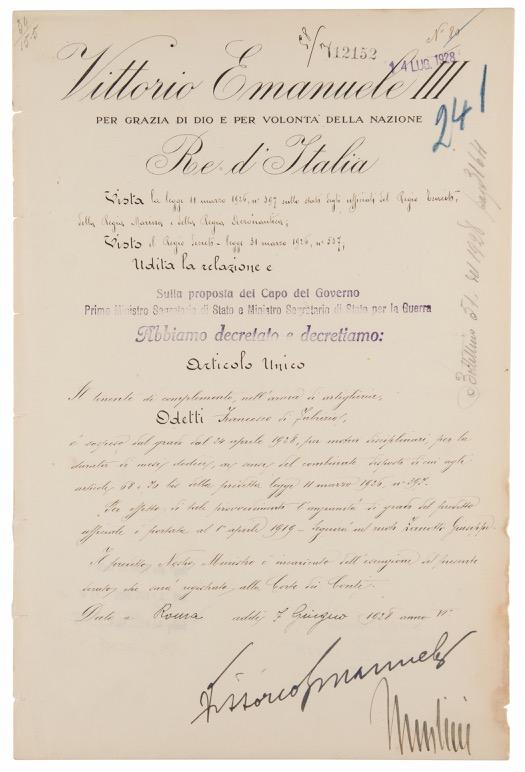 N. 20
58/7 12152
14 LUG. 1928
Vittorio Emanuele III
241
PER GRAZIA DI DIO E PER VOLONTA' DELLA NAZIONE
Re d'Italia
Vista la legge 11 marzo 1926, n° 397 sullo stato degli ufficiali del Regio Esercito,
della Regia Marina e della Regia Aeronautica;
Visto il Regio decreto-legge 31 marzo 1926, n° 537;
Udita la relazione e
Sulla proposta del Capo del Governo
Primo Ministro Segretario di Stato e Ministro Segretario di Stato per la Guerra
Abbiamo decretato e decretiamo:
Articolo Unico
Il tenente di complemento, nell'arma di artiglieria,
Odetti Francesco di
è sospeso dal grado dal 24 aprile 1928, per motivi disciplinari, per la
durata di mesi dodici, ai sensi del combinato disposto di cui agli
articoli 68 e 70 della predetta legge 11 marzo 1926, n° 397.
Per effetto di tale provvedimento l'anzianità di grado del predetto
ufficiale è portata al 1° aprile 1919 - Seguirà nel ruolo Giuseppe
Il predetto Nostro Ministro è incaricato dell'esecuzione del presente
decreto, che sarà registrato alla Corte dei Conti.
Dato a Roma addì 7 Giugno 1928 anno VI°
Vittorio Emanuele
Mussolini
Bollettino 51. del 1928